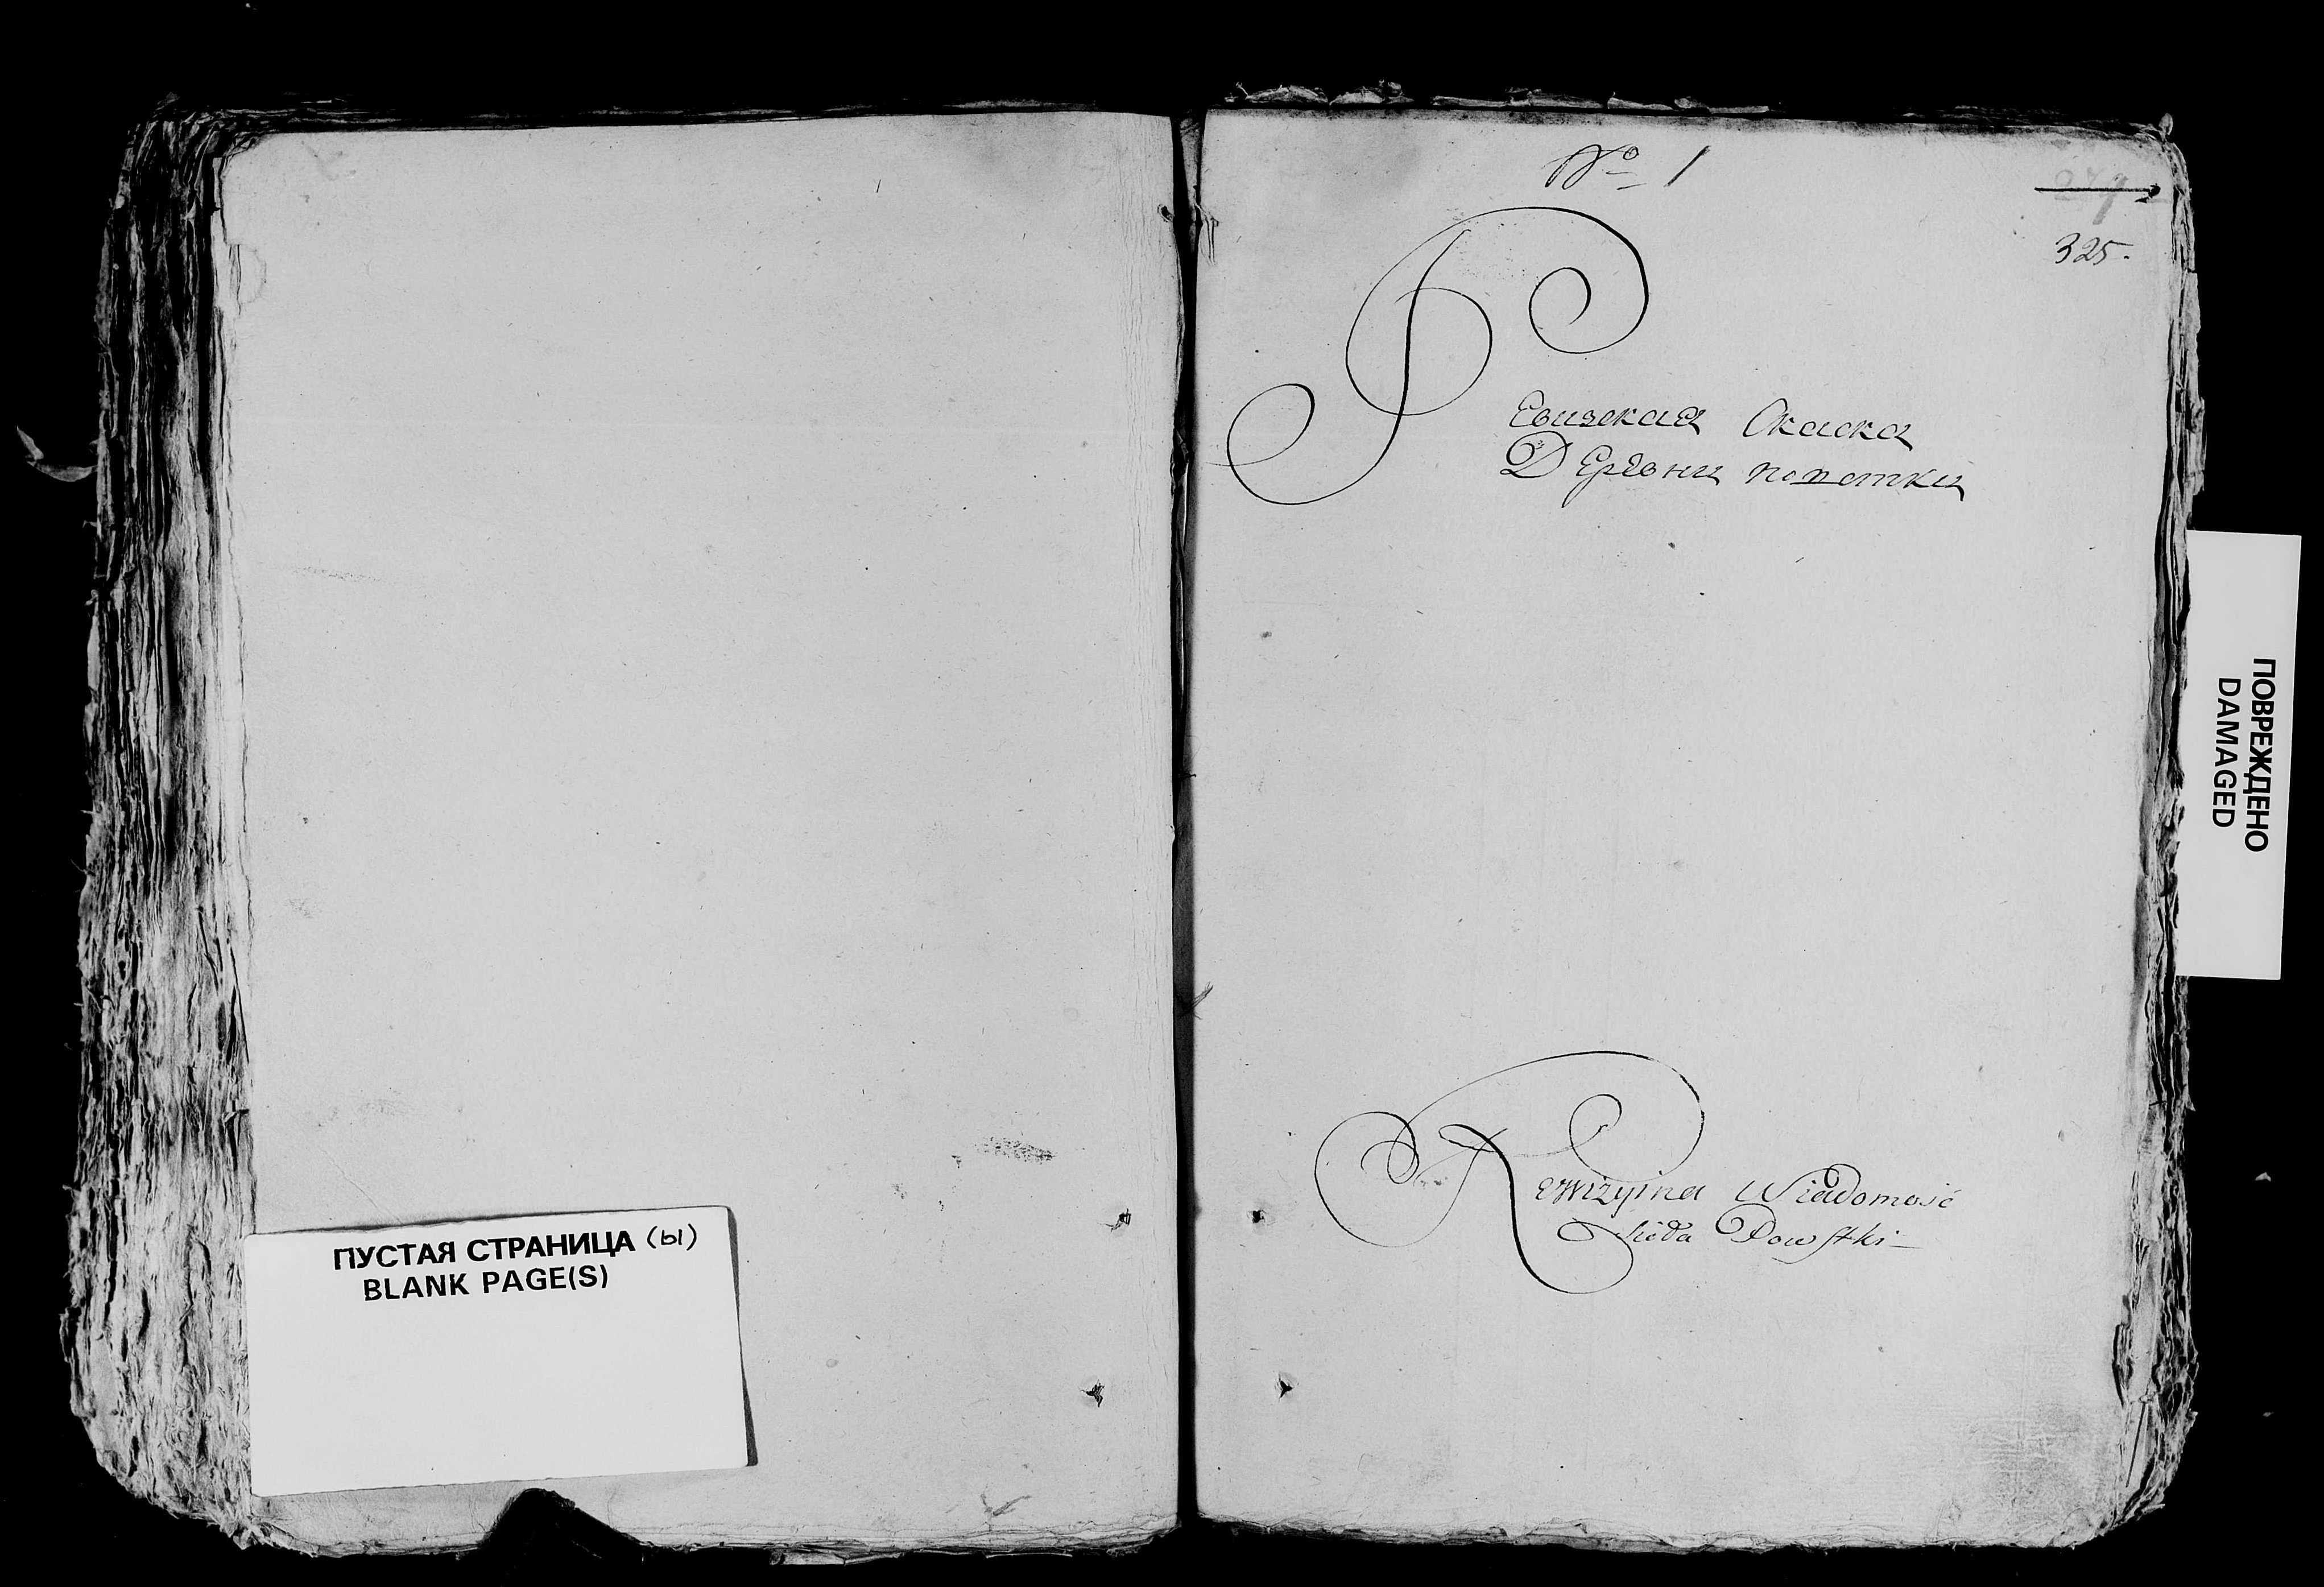 ПУСТАЯ СТРАНИЦА (ы)
BLANK PAGE(S)
№ 1
325.
Ревизская Скаска
Деревни
Rewizyina Wiadomość
Sioła Powstki
ПОВРЕЖДЕНО
DAMAGED